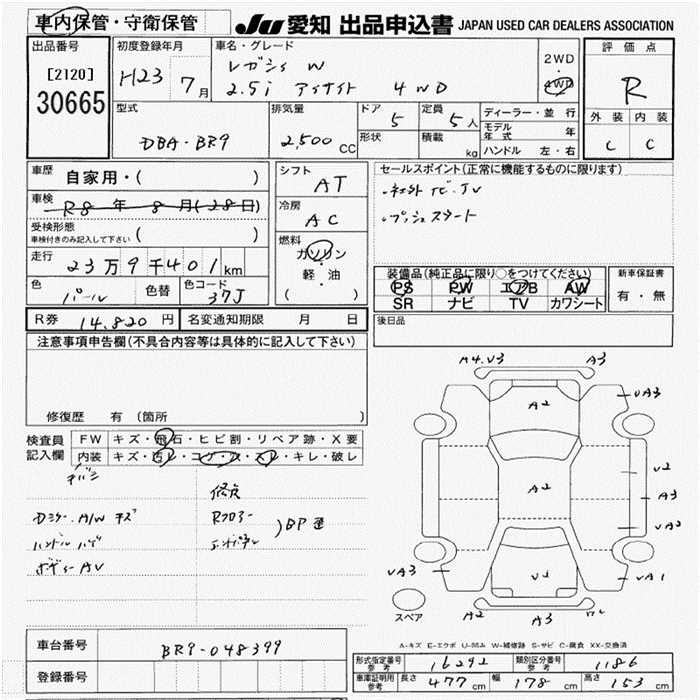 車内保管・守衛保管
JU 愛知 出品申込書 JAPAN USED CAR DEALERS ASSOCIATION
出品番号
[2120]
30665
初度登録年月
H23年 7月
車名・グレード
レガシィ W
2.5i アイサイト 4WD
2WD
4WD
評価点
R
外装 内装
C C
型式
DBA-BR9
排気量
2,500 CC
ドア 5
形状
定員 5人
積載 kg
ディーラー・並行
モデル年式 年
ハンドル 左・右
車歴 自家用・( )
車検 R8年 8月(28日)
受検形態
車検付きのみ記入して下さい ( )
走行 23万9千401km
色 パール 色替 色コード 37J
R券 14,820 円 名変通知期限 月 日
シフト AT
冷房 AC
燃料
ガソリン
・
軽・油
( )
セールスポイント(正常に機能するものに限ります)
・プッシュスタート
装備品(純正品に限り○をつけてください)
PS PW エアB AW
SR ナビ TV カワシート
新車保証書
有・無
後日品
注意事項申告欄(不具合内容等は具体的に記入して下さい)
修復歴 有 (箇所 )
検査員記入欄
FW キズ・飛石・ヒビ割・リペア跡・X要
内装 キズ・汚レ・コゲ・穴・スレ・キレ・破レ
修復
ハンドル ハゲ
ボディー AU
Rフロアー
エンドパネル
)BP 歪
A4.U3 A3
A2 UA3
A2 U2
A3
UA2
UA3 U1 UA1
スペア A2 A3
A-キズ E-エクボ U-凹み W-補修跡 S-サビ C-腐食 XX-交換済
車台番号 BR9-048399
登録番号
形式指定番号参考 16292 類別区分番号参考 1186
車庫証明用参考 長さ 477cm 幅 178cm 高さ 153cm